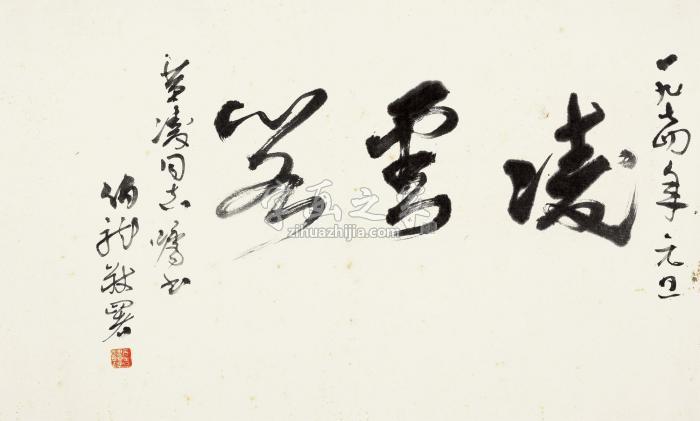 一九七四年元旦
凌雲閣
凌同志嘱书
伯龍敬署
字画之家
zihuazhijia.com